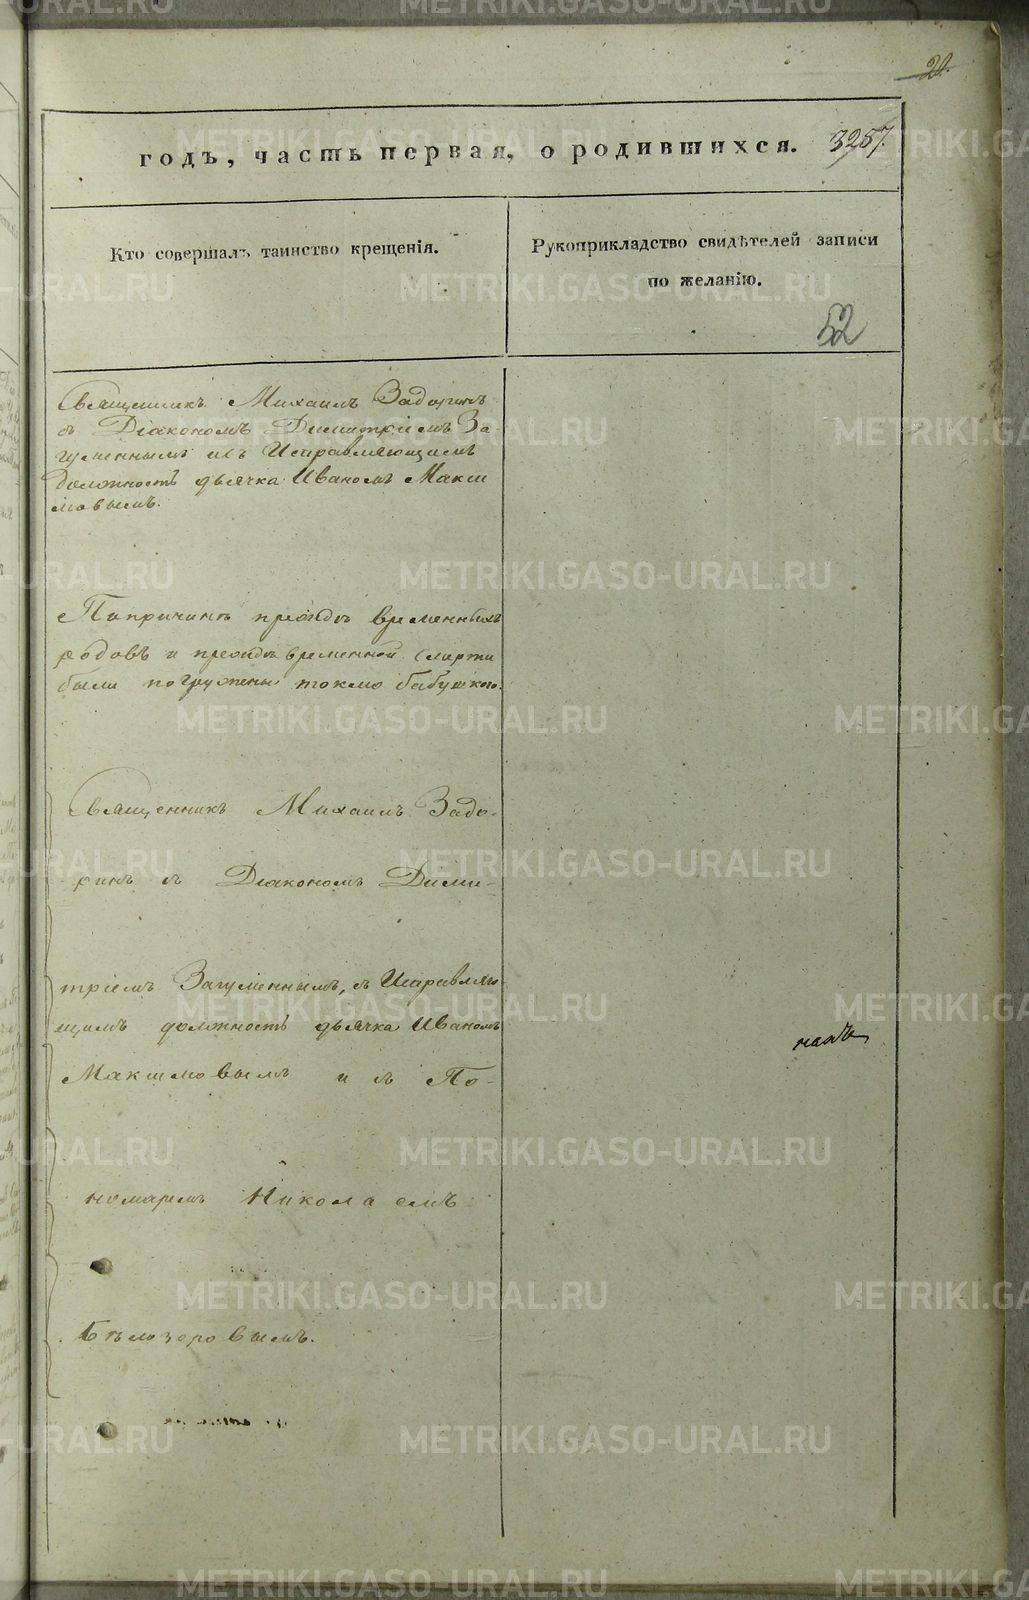 21.
годъ, часть первая, о родившихся. 3257.
Кто совершалъ таинство крещенія.
Рукоприкладство свидѣтелей записи
по желанію.
52
Священникъ Михаилъ Задоринъ
съ Діакономъ Димитріемъ За-
гуменнымъ и съ Исправляющимъ
должность дьячка Иваномъ Макси
мовымъ.
По причинѣ преждевременныхъ
родовъ и преждевременной смерти
были погружены токмо бабушкою.
Священникъ Михаилъ Задо-
ринъ съ Діакономъ Дими-
тріемъ Загуменнымъ, съ Исправляю-
щимъ должность дьячка Иваномъ
Максимовымъ и съ По-
номаремъ Николаемъ
Бѣлозеровымъ.
METRIKI.GASO-URAL.RU